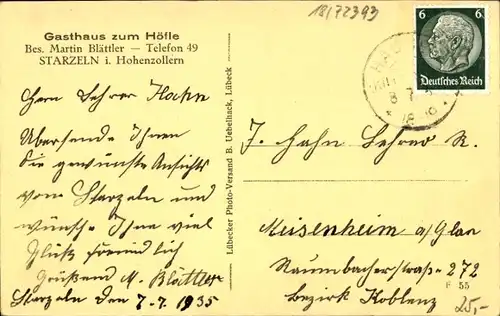 18/72393
Gasthaus zum Höfle
Bes. Martin Blättler — Telefon 49
STARZELN i. Hohenzollern
6 6
Deutsches Reich
Herrn Lehrer Hahn
Übersende Ihnen
die gewünschte Ansichts
vom Starzeln und
wünsche Ihne viel
Glück freundlich
Grüßend M. Blättler
Starzeln den 7-7. 1935
Lübecker Photo-Versand B. Uebelhack, Lübeck
J. Hahn Lehrer R.
Meisenheim a/Glan
Raumbacherstraße 272
Bezirk Koblenz
F 55
25,-